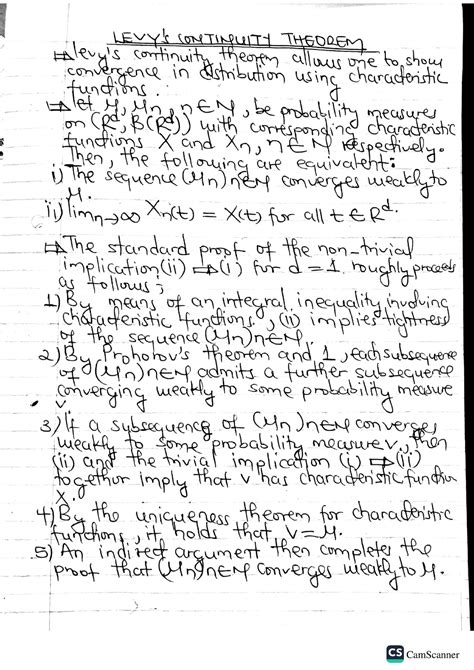 LEVY's CONTINUITY THEOREM
⇒ levy's continuity theorem allows one to show
convergence in distribution using characteristic
functions.
⇒ let μ, μn, n∈N, be probability measures
on (Rᵈ, B(Rᵈ)) with corresponding characteristic
functions X and Xn, n∈N respectively.
Then, the following are equivalent:
i) The sequence (μn)n∈N converges weakly to
μ.
ii) limn→∞ Xn(t) = X(t) for all t∈Rᵈ.
⇒ The standard proof of the non-trivial
implication (ii) ⇒ (i) for d = 1 roughly proceeds
as follows;
1) By means of an integral inequality involving
characteristic functions, (ii) implies tightness
of the sequence (μn)n∈N.
2) By Prohobov's theorem and 1, each subsequence
of (μn)n∈N admits a further subsequence
converging weakly to some probability measure
v.
3) If a subsequence of (μn)n∈N converges
weakly to some probability measure v, then
(ii) and the trivial implication (i) ⇒ (ii)
together imply that v has characteristic function
X.
4) By the uniqueness theorem for characteristic
functions, it holds that v = μ.
5) An indirect argument then completes the
proof that (μn)n∈N converges weakly to μ.
CS CamScanner